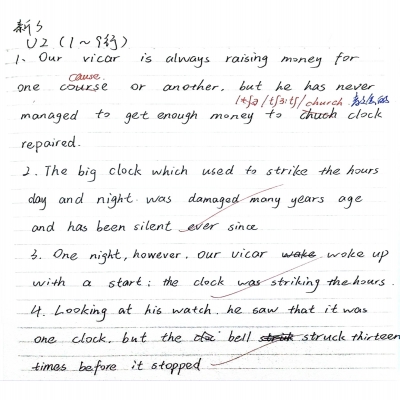 新3
U2 (1～9行)
1、Our vicar is always raising money for
cause
one course or another, but he has never
/tʃɜːtʃ/ church
managed to get enough money to church clock
repaired.
2. The big clock which used to strike the hours
day and night was damaged many years age
and has been silent ever since
3. One night, however, our vicar wake woke up
with a start: the clock was striking the hours.
4. Looking at his watch, he saw that it was
one clock, but the bell struck thirteen
times before it stopped